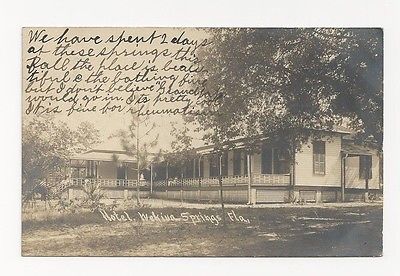 We have spent 2 days
at these springs, this
Fall the place is beau-
tiful & the bathing fine
but I don't believe Blanche
would go in. It's pretty cold
It is fine for rheumatism
Hotel. Wekiwa Springs Fla.